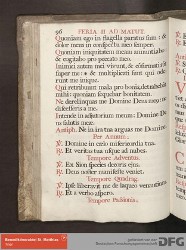 96 FERIA II AD MATUT.
Quoniam ego in flagella paratus sum: &
dolor meus in conspectu meo semper.
Quoniam iniquitatem meam annuntiabo:
& cogitabo pro peccato meo.
Inimici autem mei vivunt, & confirmati sunt
super me: & multiplicati sunt qui ode-
runt me inique.
Qui retribuunt mala pro bonis, detrahebant
mihi: quoniam sequebar bonitatem.
Ne derelinquas me Domine Deus meus: ne
discesseris a me.
Intende in adjutorium meum: Domine De-
us salutis meæ.
Antiph. Ne in ira tua arguas me Domine
Per Annum.
℣. Domine in cœlo misericordia tua.
℟. Et veritas tua usque ad nubes.
Tempore Adventus.
℣. Ex Sion species decoris ejus.
℟. Deus noster manifeste veniet.
Tempore Quadrag.
℣. Ipse liberavit me de laqueo venantium
℟. Et a verbo aspero.
Tempore Passionis.
DFG